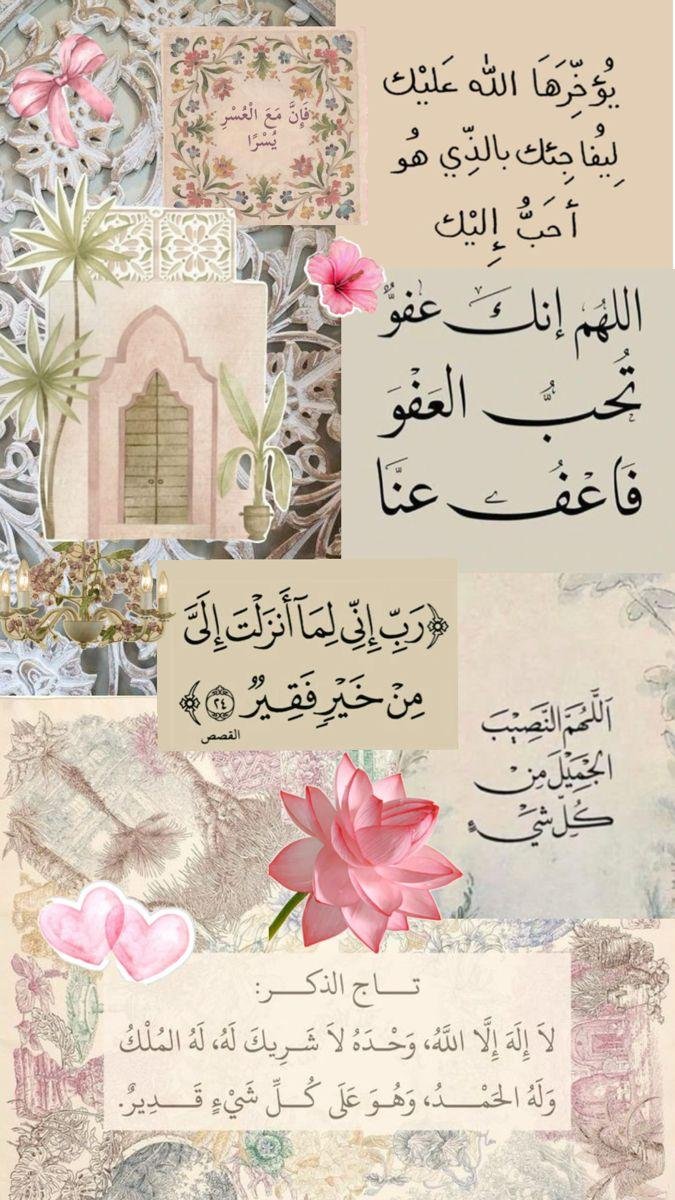 فَإِنَّ مَعَ الْعُسْرِ
يُسْرًا
يُؤخِّرَهَا الله عَليْك
لِيفُاجِئك بالذِّي هُو
أحَبُّ إِليْك
اللهُم إنكَ عفوٌّ
تُحبُّ العَفوَ
فَاعْفُ عنَّا
﴿رَبِّ إِنِّي لِمَآ أَنزَلْتَ إِلَيَّ
مِنْ خَيْرٍ فَقِيرٌ ٢٤﴾
القصص
اَللَّهُمَّ النَّصِيْبَ
الجَمِيْلَ مِنْ
كُلِّ شَيْءٍ
تـــاج الذكـــر:
لاَ إِلَهَ إِلَّا اللَّهُ، وَحْـدَهُ لاَ شَـرِيكَ لَهُ، لَهُ المُلْكُ
وَلَهُ الحَمْـــدُ، وَهُـوَ عَلَى كُـــلِّ شَيْءٍ قَـــدِيرٌ.